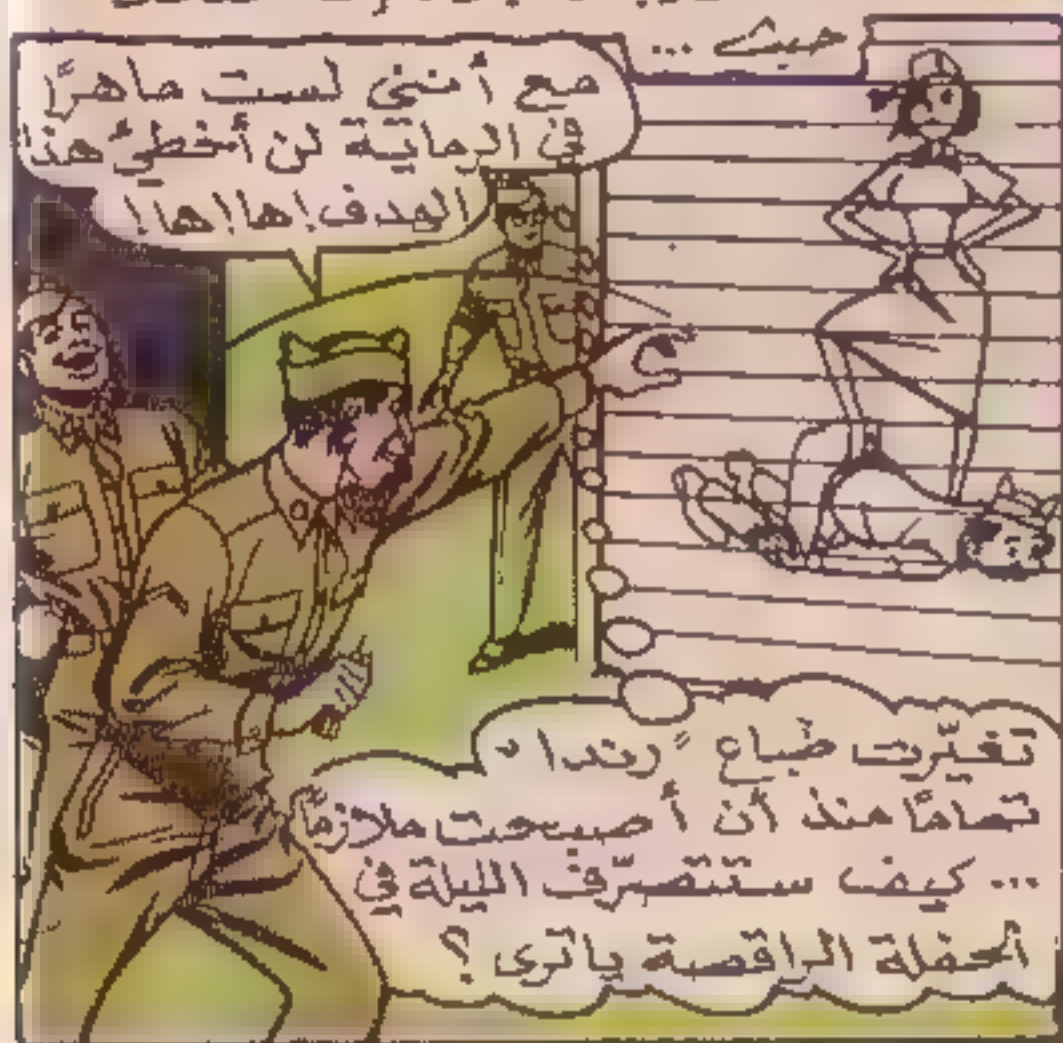 حيث ...
مع أنني لست ماهرًا
في الرماية لن أخطئ هذا
الهدف! ها! ها!
تغيّرت طباع "رندا"
تمامًا منذ أن أصبحت ملازمًا
... كيف ستتصرّف الليلة في
الحفلة الراقصة يا ترى ؟